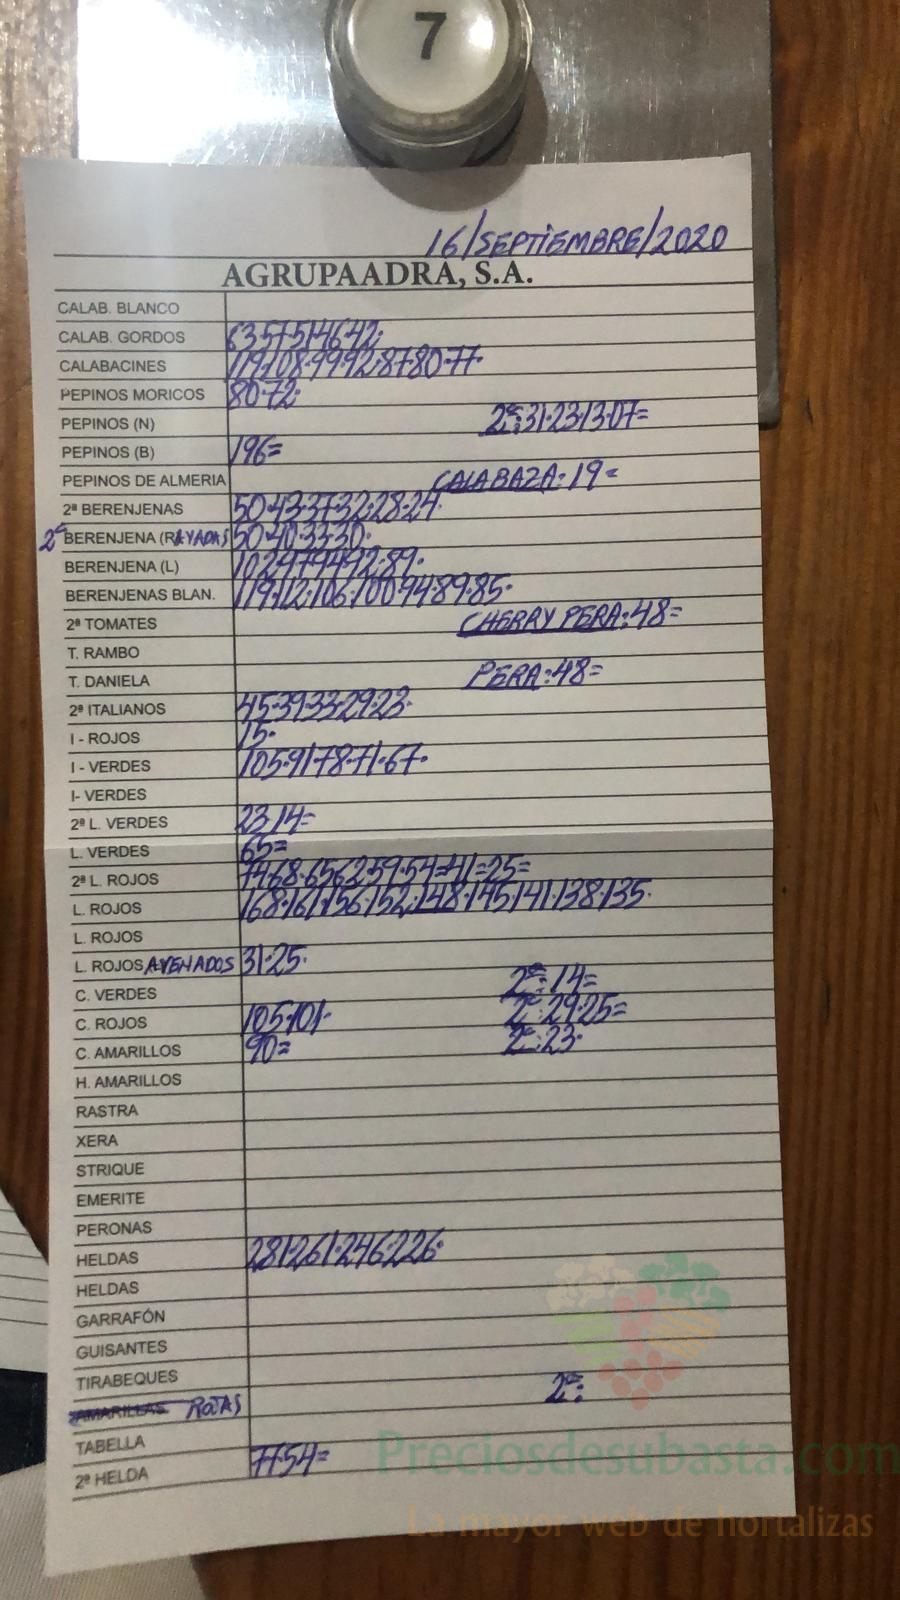 7
16/SEPTIEMBRE/2020
AGRUPAADRA, S.A.
CALAB. BLANCO
CALAB. GORDOS 63·57·51·46·42·
CALABACINES 119·108·99·92·87·80·77·
PEPINOS MORICOS 80·72·
PEPINOS (N) 2ª:31·23·13·07=
PEPINOS (B) 196=
PEPINOS DE ALMERIA CALABAZA:19=
2ª BERENJENAS 50·43·37·32·28·24·
2ª BERENJENA (RAYADAS 50·40·33·30·
BERENJENA (L) 102·97·94·92·89·
BERENJENAS BLAN. 119·112·106·100·94·89·85·
2ª TOMATES CHERRY PERA:48=
T. RAMBO
T. DANIELA PERA:48=
2ª ITALIANOS 45·39·33·29·23·
I - ROJOS 15·
I - VERDES 105·91·78·71·67·
I- VERDES
2ª L. VERDES 23·14=
L. VERDES 65=
2ª L. ROJOS 74·68·65·62·59·54=41=25=
L. ROJOS 168·161·156·152·148·145·141·138·135·
L. ROJOS
L. ROJOS AVENADOS 31·25·
C. VERDES 2ª:14=
C. ROJOS 105·101· 2ª:29·25=
C. AMARILLOS 90= 2ª:23·
H. AMARILLOS
RASTRA
XERA
STRIQUE
EMERITE
PERONAS
HELDAS 281·261·246·226·
HELDAS
GARRAFÓN
GUISANTES
TIRABEQUES 2ª:
AMARILLAS ROJAS
TABELLA
2ª HELDA 77·54=
Preciosdesubasta.com
La mayor web de hortalizas